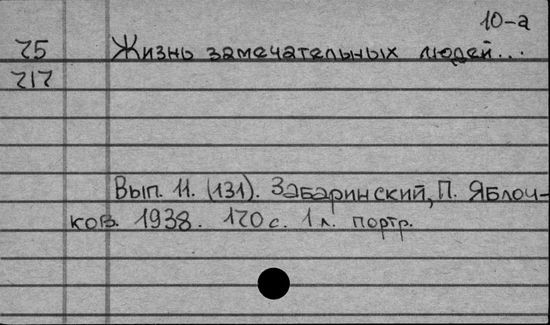 10-а
75 Жизнь замечательных людей...
717
Вып. 11. (131). Забаринский, П. Яблоч-
ков. 1938. 170 с. 1 л. портр.